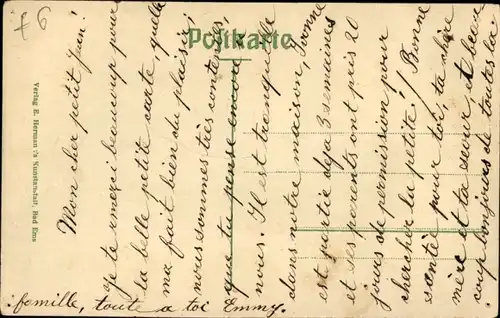 +6
Postkarte
Verlag E. Hermann's Kunstanstalt, Bad Ems
Mon cher petit Jean!
Je te remerci beaucoup pour
ta belle petite carte, quelle
ma fait bien du plaisir,
nous sommes très contentes,
que tu pense encore à
nous. Il est tranquille
dans notre maison, Yvonne
est partie déja 3 semaines
et ses parents ont pris 20
jours de permission pour
chercher la petite! Bonne
santée pour toi, ta chère
mère et ta sœur, et beau
coup bonjours de toutes la
famille, toute a toi Emmy.